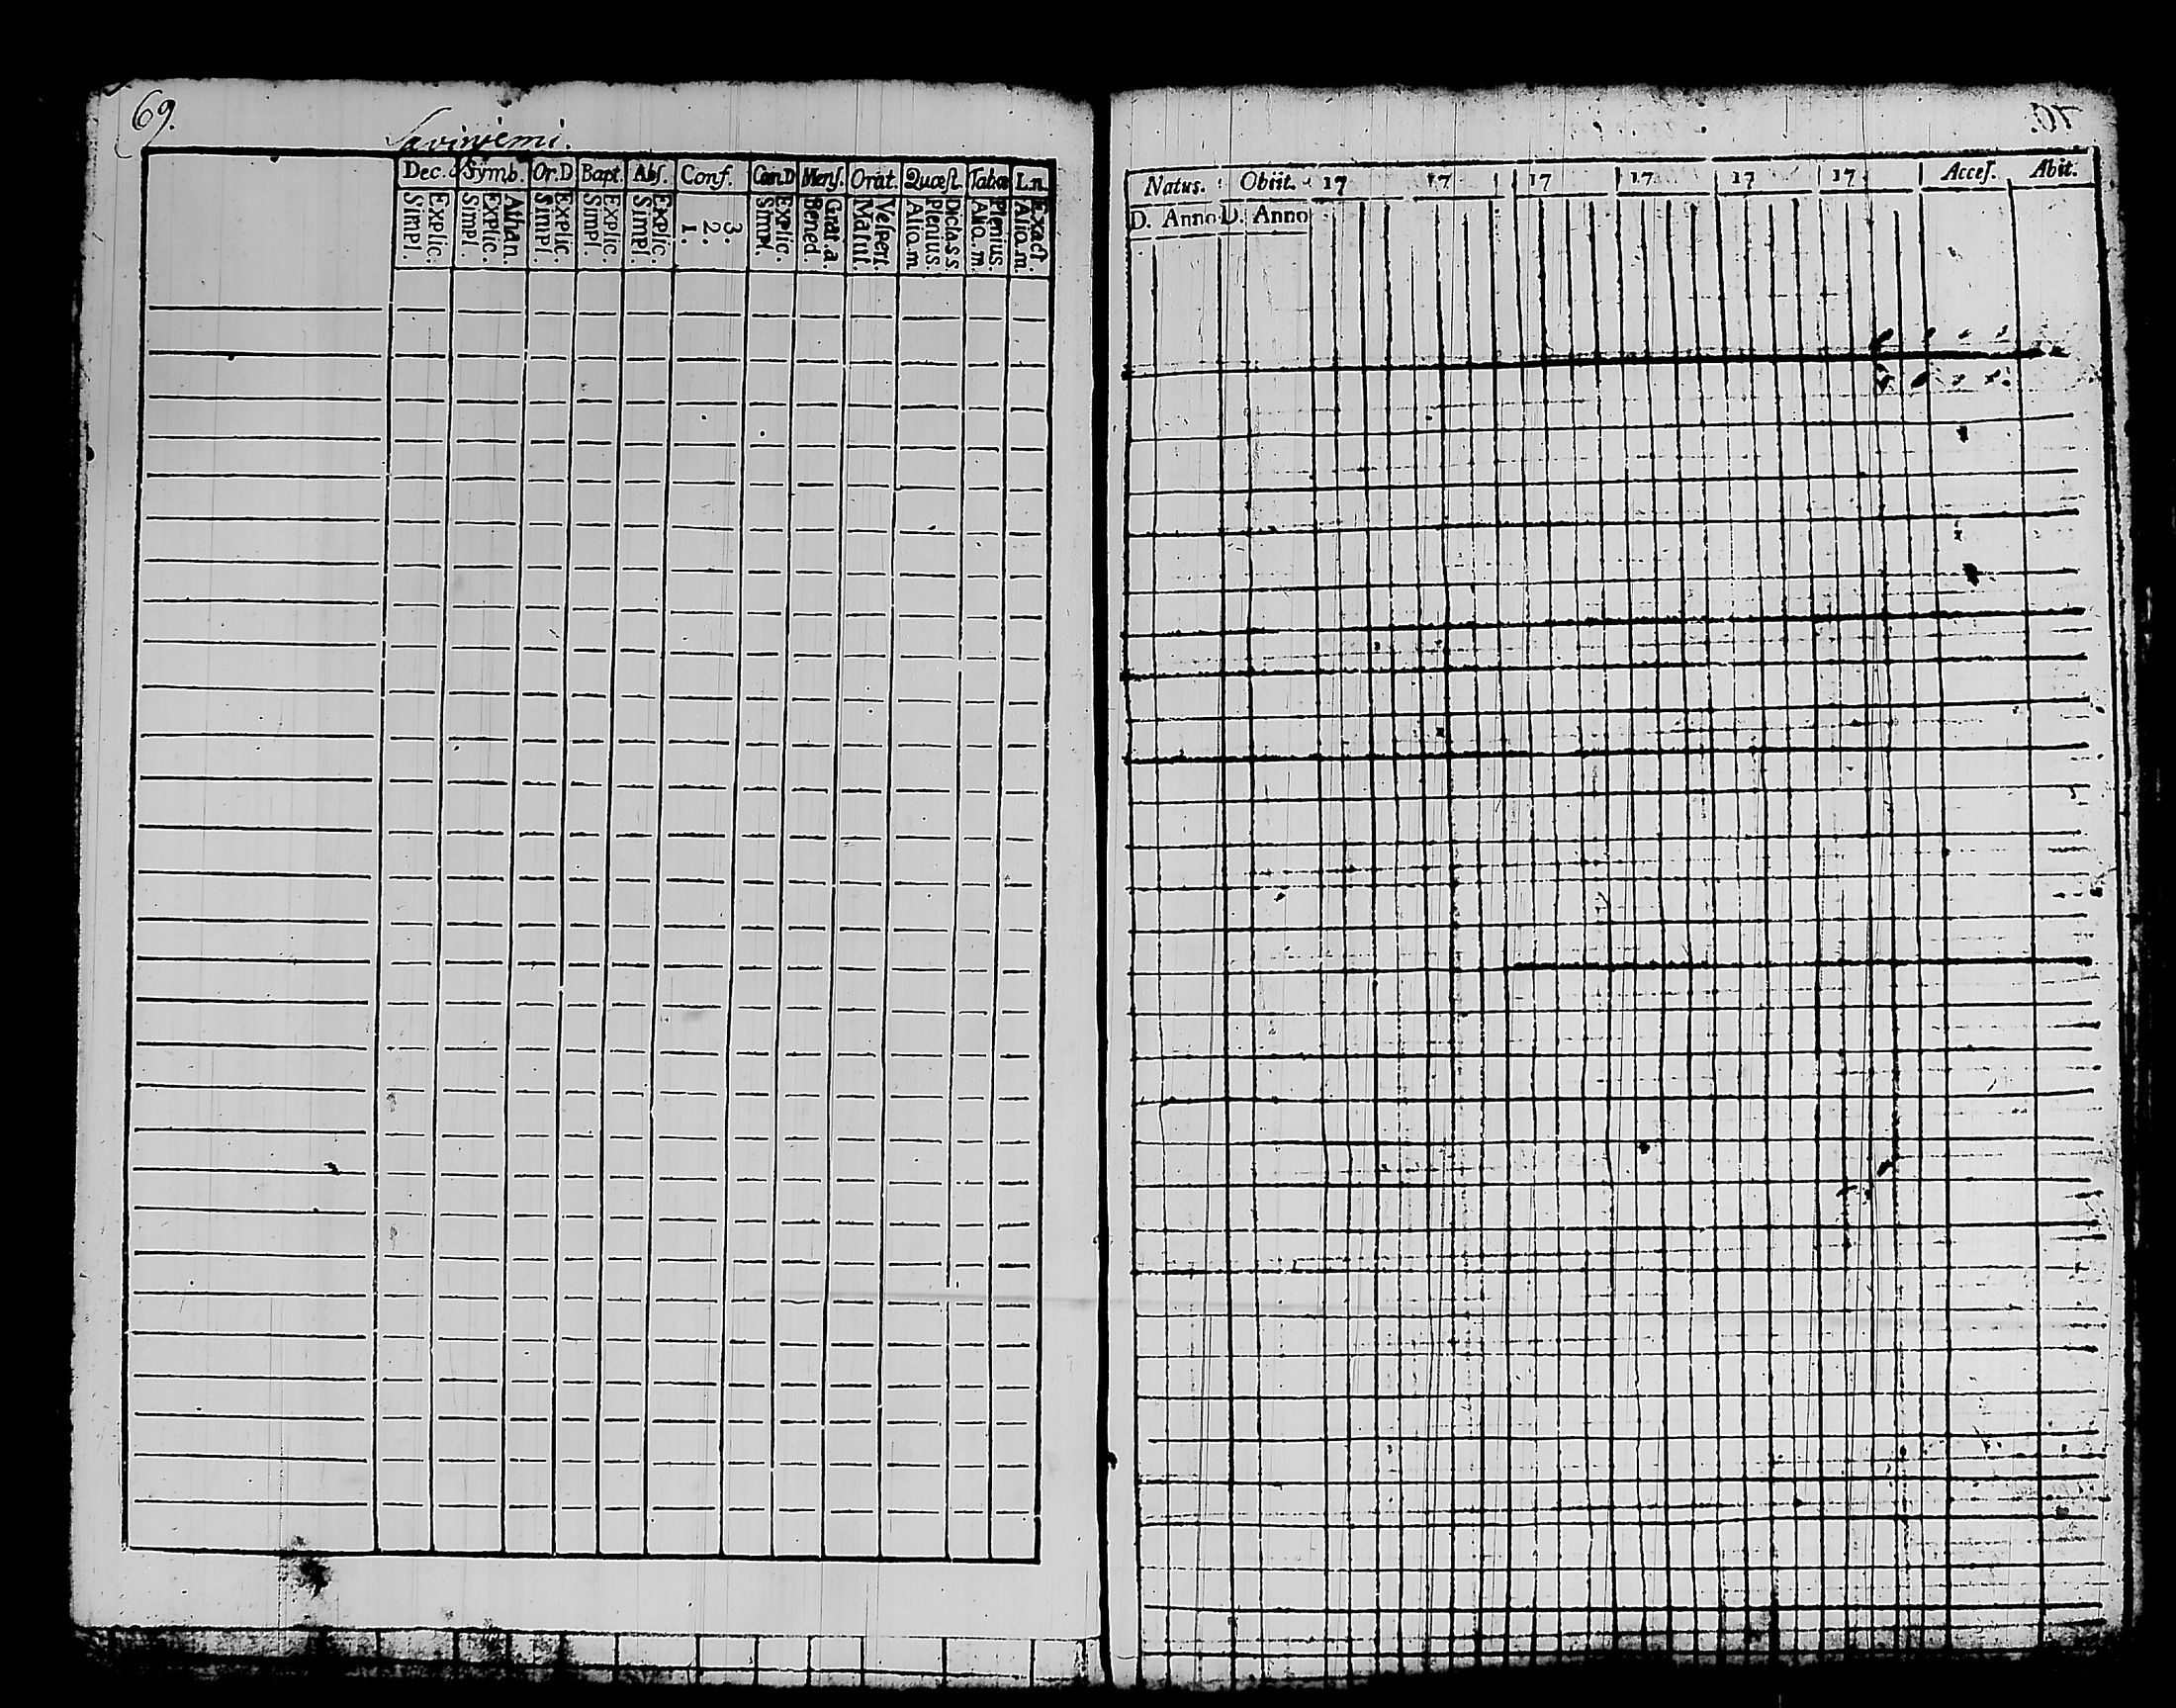 69.
Savinjemi.
Dec. Symb. Or.D Bapt. Abſ. Conf. Cœn.D Menſ. Orat. Quæſt. Tabæ L.n.
Explic. Simpl. Athan. Explic. Simpl. Explic. Simpl. Explic. Simpl. Explic. Simpl. 3. 2. 1. Explic. Simpl. Grat.a. Bened. Veſpert. Matut. Dicta.s.s. Plenius. Alio.m. Plenius. Alio.m. Exact. Alio.m.
70.
Natus. Obiit. 17 17 17 17 17 17 Acceſ. Abit.
D. Anno D. Anno